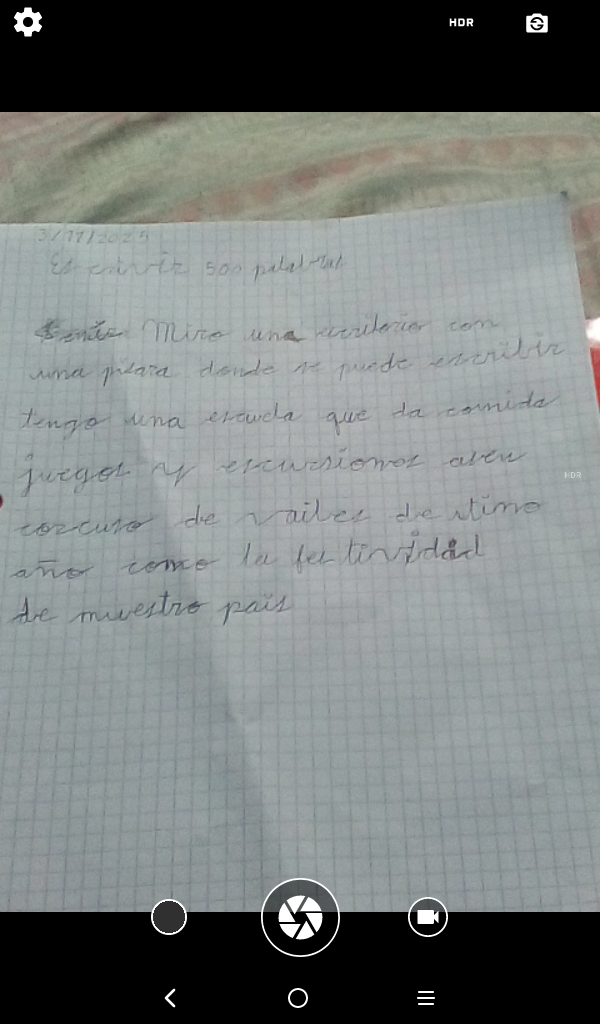 HDR
3/11/2025
Escrivir 500 palabras
Miro una escritorior con
una pisara donde se puede escribir
tengo una escuela que da comida
juegos y escursiones aveu
corcurso de vailes de utimo
año como la festividad
de nuestro país
HDR